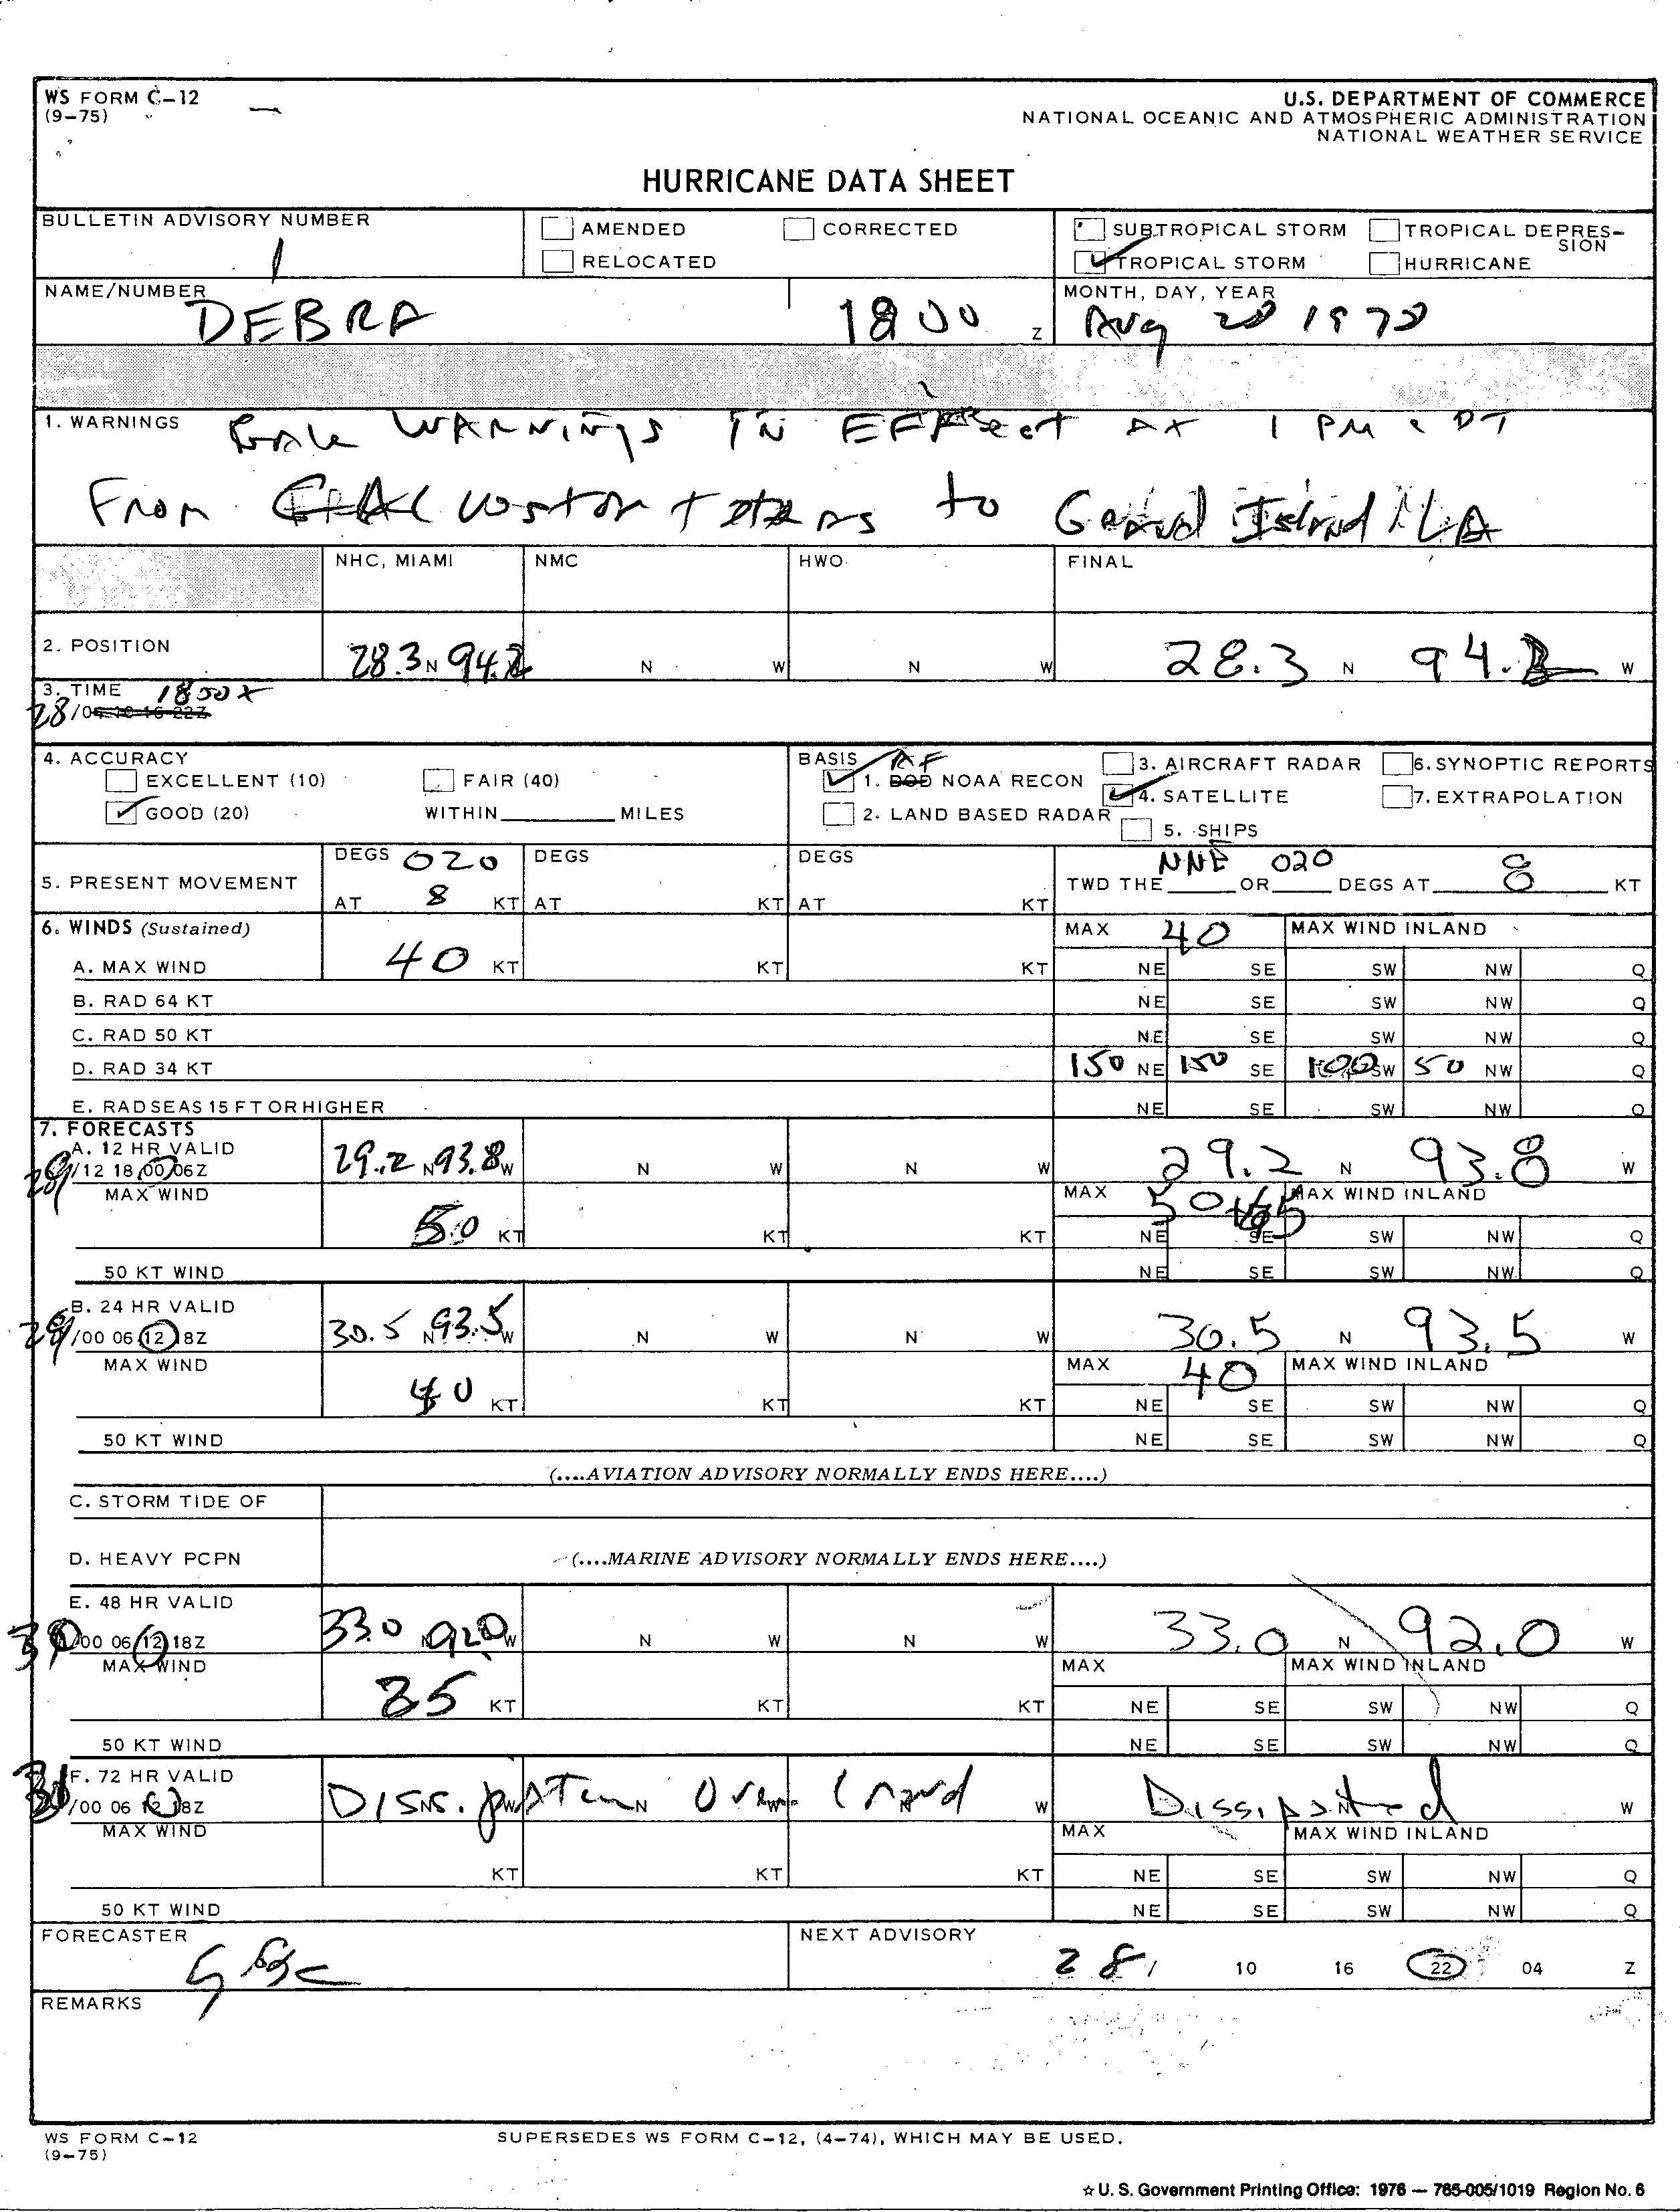 WS FORM C-12
(9-75)
U.S. DEPARTMENT OF COMMERCE
NATIONAL OCEANIC AND ATMOSPHERIC ADMINISTRATION
NATIONAL WEATHER SERVICE
HURRICANE DATA SHEET
BULLETIN ADVISORY NUMBER
1
AMENDED CORRECTED
RELOCATED
SUBTROPICAL STORM TROPICAL DEPRES-
SION
TROPICAL STORM HURRICANE
NAME/NUMBER
DEBRA 1800 Z
MONTH, DAY, YEAR
Aug 28 1978
1. WARNINGS Gale WARNINGS IN EFFect At 1 PM CDT
From Galveston Texas to Grand Island LA
NHC, MIAMI NMC HWO FINAL
2. POSITION 28.3 N 94.2 N W N W 28.3 N 94.2 W
3. TIME 1800Z
28/04 10 16 22Z
4. ACCURACY
EXCELLENT (10) FAIR (40)
GOOD (20) WITHIN MILES
BASIS AF
1. DOD NOAA RECON 3. AIRCRAFT RADAR 6. SYNOPTIC REPORTS
2. LAND BASED RADAR 4. SATELLITE 7. EXTRAPOLATION
5. SHIPS
5. PRESENT MOVEMENT DEGS 020 DEGS DEGS
AT 8 KT AT KT AT KT
TWD THE NNE OR 020 DEGS AT 8 KT
6. WINDS (Sustained) MAX 40 MAX WIND INLAND
A. MAX WIND 40 KT KT KT NE SE SW NW Q
B. RAD 64 KT NE SE SW NW Q
C. RAD 50 KT NE SE SW NW Q
D. RAD 34 KT 150 NE 150 SE 100 SW 50 NW Q
E. RAD SEAS 15 FT OR HIGHER NE SE SW NW Q
7. FORECASTS
A. 12 HR VALID
29/12 18 00 06Z 29.2 N 93.8 W N W N W 29.2 N 93.8 W
MAX WIND MAX 50 MAX WIND INLAND
50 KT KT KT NE SE SW NW Q
50 KT WIND NE SE SW NW Q
B. 24 HR VALID
29/00 06 12 18Z 30.5 N 93.5 W N W N W 30.5 N 93.5 W
MAX WIND MAX 40 MAX WIND INLAND
40 KT KT KT NE SE SW NW Q
50 KT WIND NE SE SW NW Q
(....AVIATION ADVISORY NORMALLY ENDS HERE....)
C. STORM TIDE OF
D. HEAVY PCPN (....MARINE ADVISORY NORMALLY ENDS HERE....)
E. 48 HR VALID
30/00 06 12 18Z 33.0 N 92.0 W N W N W 33.0 N 92.0 W
MAX WIND MAX MAX WIND INLAND
25 KT KT KT NE SE SW NW Q
50 KT WIND NE SE SW NW Q
F. 72 HR VALID
31/00 06 12 18Z Over Land W Dissipated W
MAX WIND MAX MAX WIND INLAND
KT KT KT NE SE SW NW Q
50 KT WIND NE SE SW NW Q
FORECASTER
NEXT ADVISORY
28/ 10 16 22 04 Z
REMARKS
WS FORM C-12
(9-75)
SUPERSEDES WS FORM C-12, (4-74), WHICH MAY BE USED.
☆ U. S. Government Printing Office: 1976 — 765-005/1019 Region No. 6